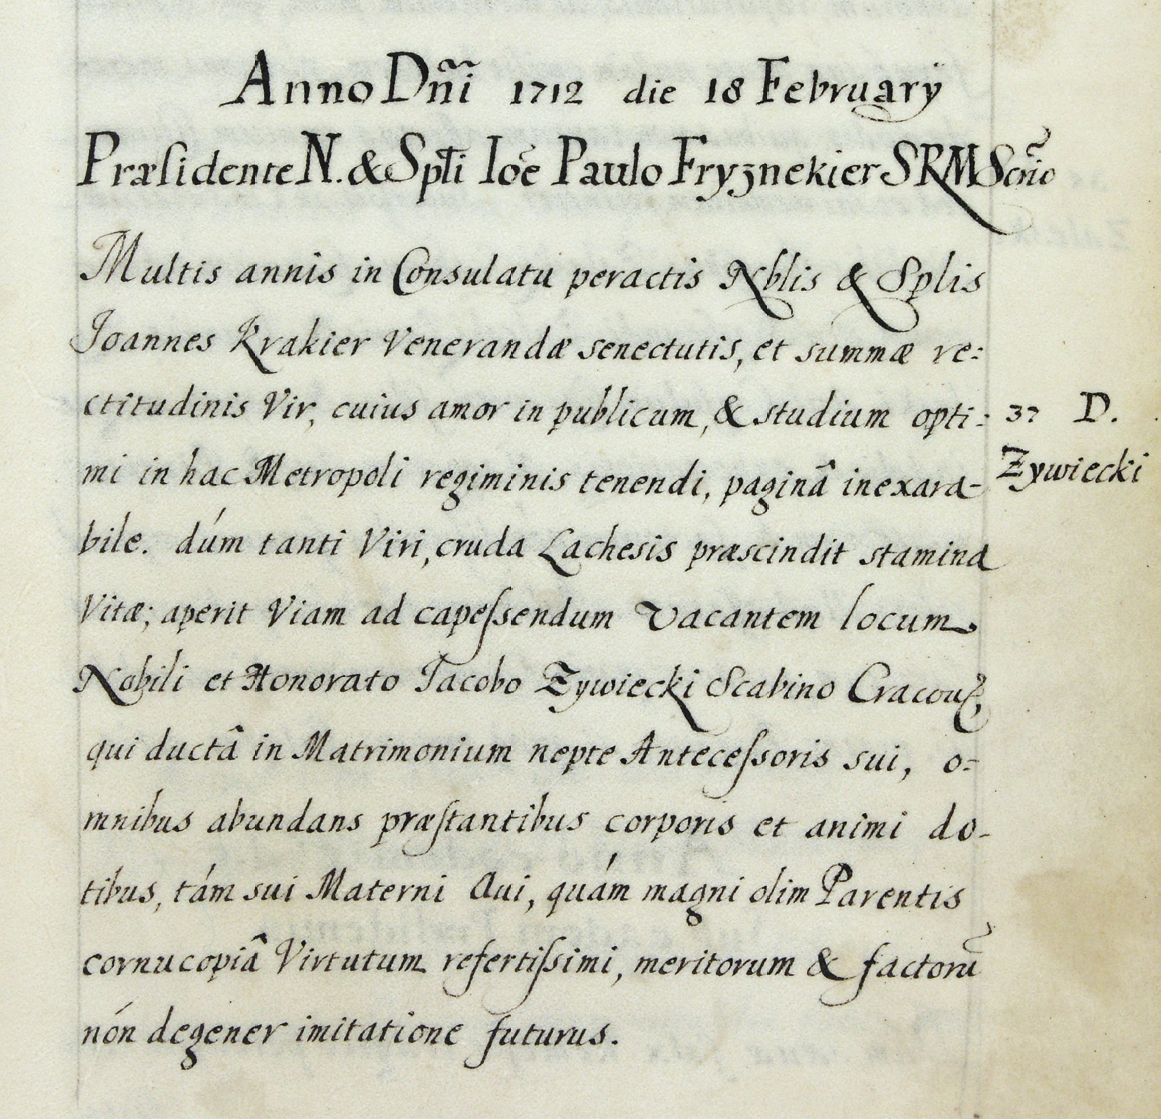 Anno Dñi 1712 die 18 Februarÿ
Præsidente N. & Splti Ioẽ Paulo Fryznekier SRM Scrio
Multis annis in Consulatu peractis Nblis & Splis
Joannes Krakier Venerandæ senectutis, et summæ re:
ctitudinis Vir, cuius amor in publicum, & studium opti:
37 D.
mi in hac Metropoli regiminis tenendi, paginâ inexara-
Zywiecki
bile. dúm tanti Viri, cruda Lachesis præscindit stamina
Vitæ; aperit Viam ad capeſsendum vacantem locum
Nobili et Honorato Jacobo Zywiecki Scabino
qui ductâ in Matrimonium nepte Anteceſsoris sui, o=
mnibus abundans præſtantibus corporis et animi do-
tibus, tám sui Materni Aui, quám magni olim Parentis
cornucopiâ Virtutum refertiſsimi, meritorum & factorũ
nón degener imitatione futurus.